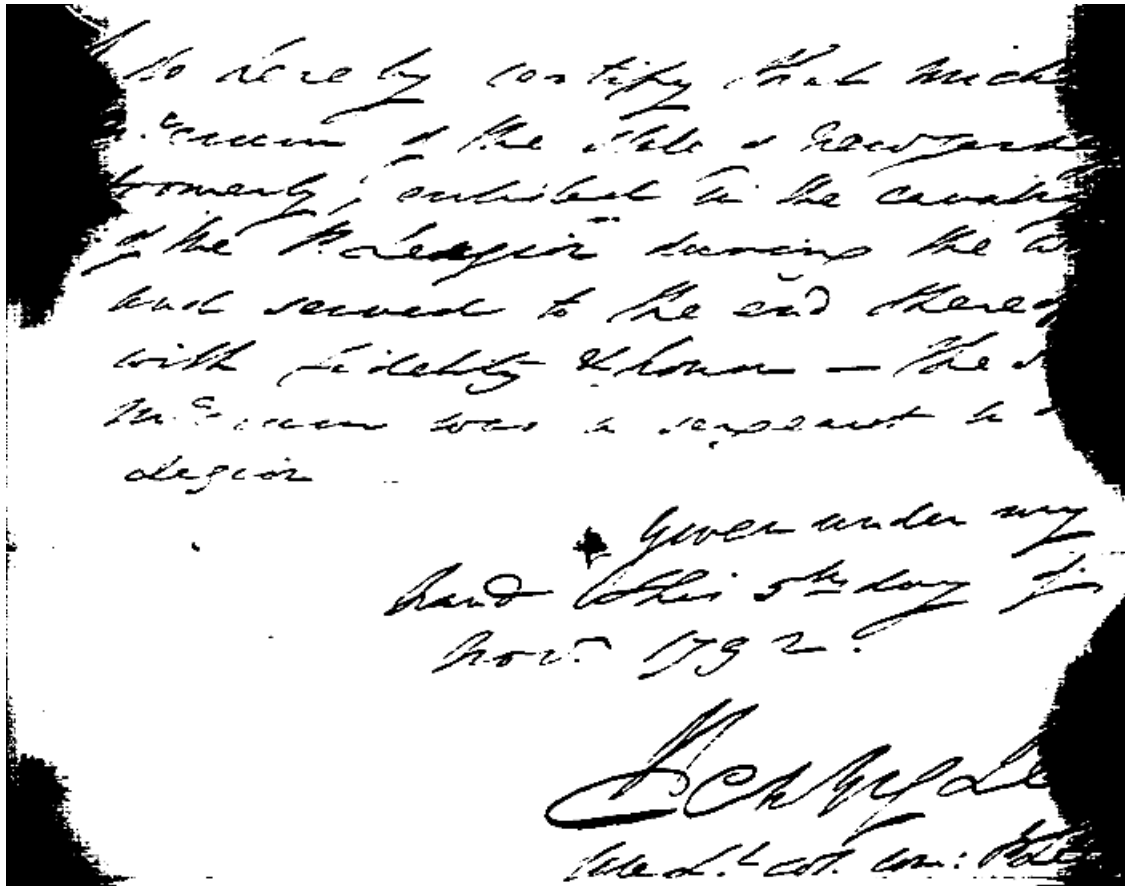 do hereby certify that Mich
McCunn of the State of New Jersey
formerly, enlisted in the cavalry
of the P. Leegion during the w
and served to the end thereof
with fidelity & honor — the s
McCunn was a sergeant in
Legion
Given under my
hand this 5th day of
Nov. 1792.
Henry Lee
late Lt. col. com: P Le